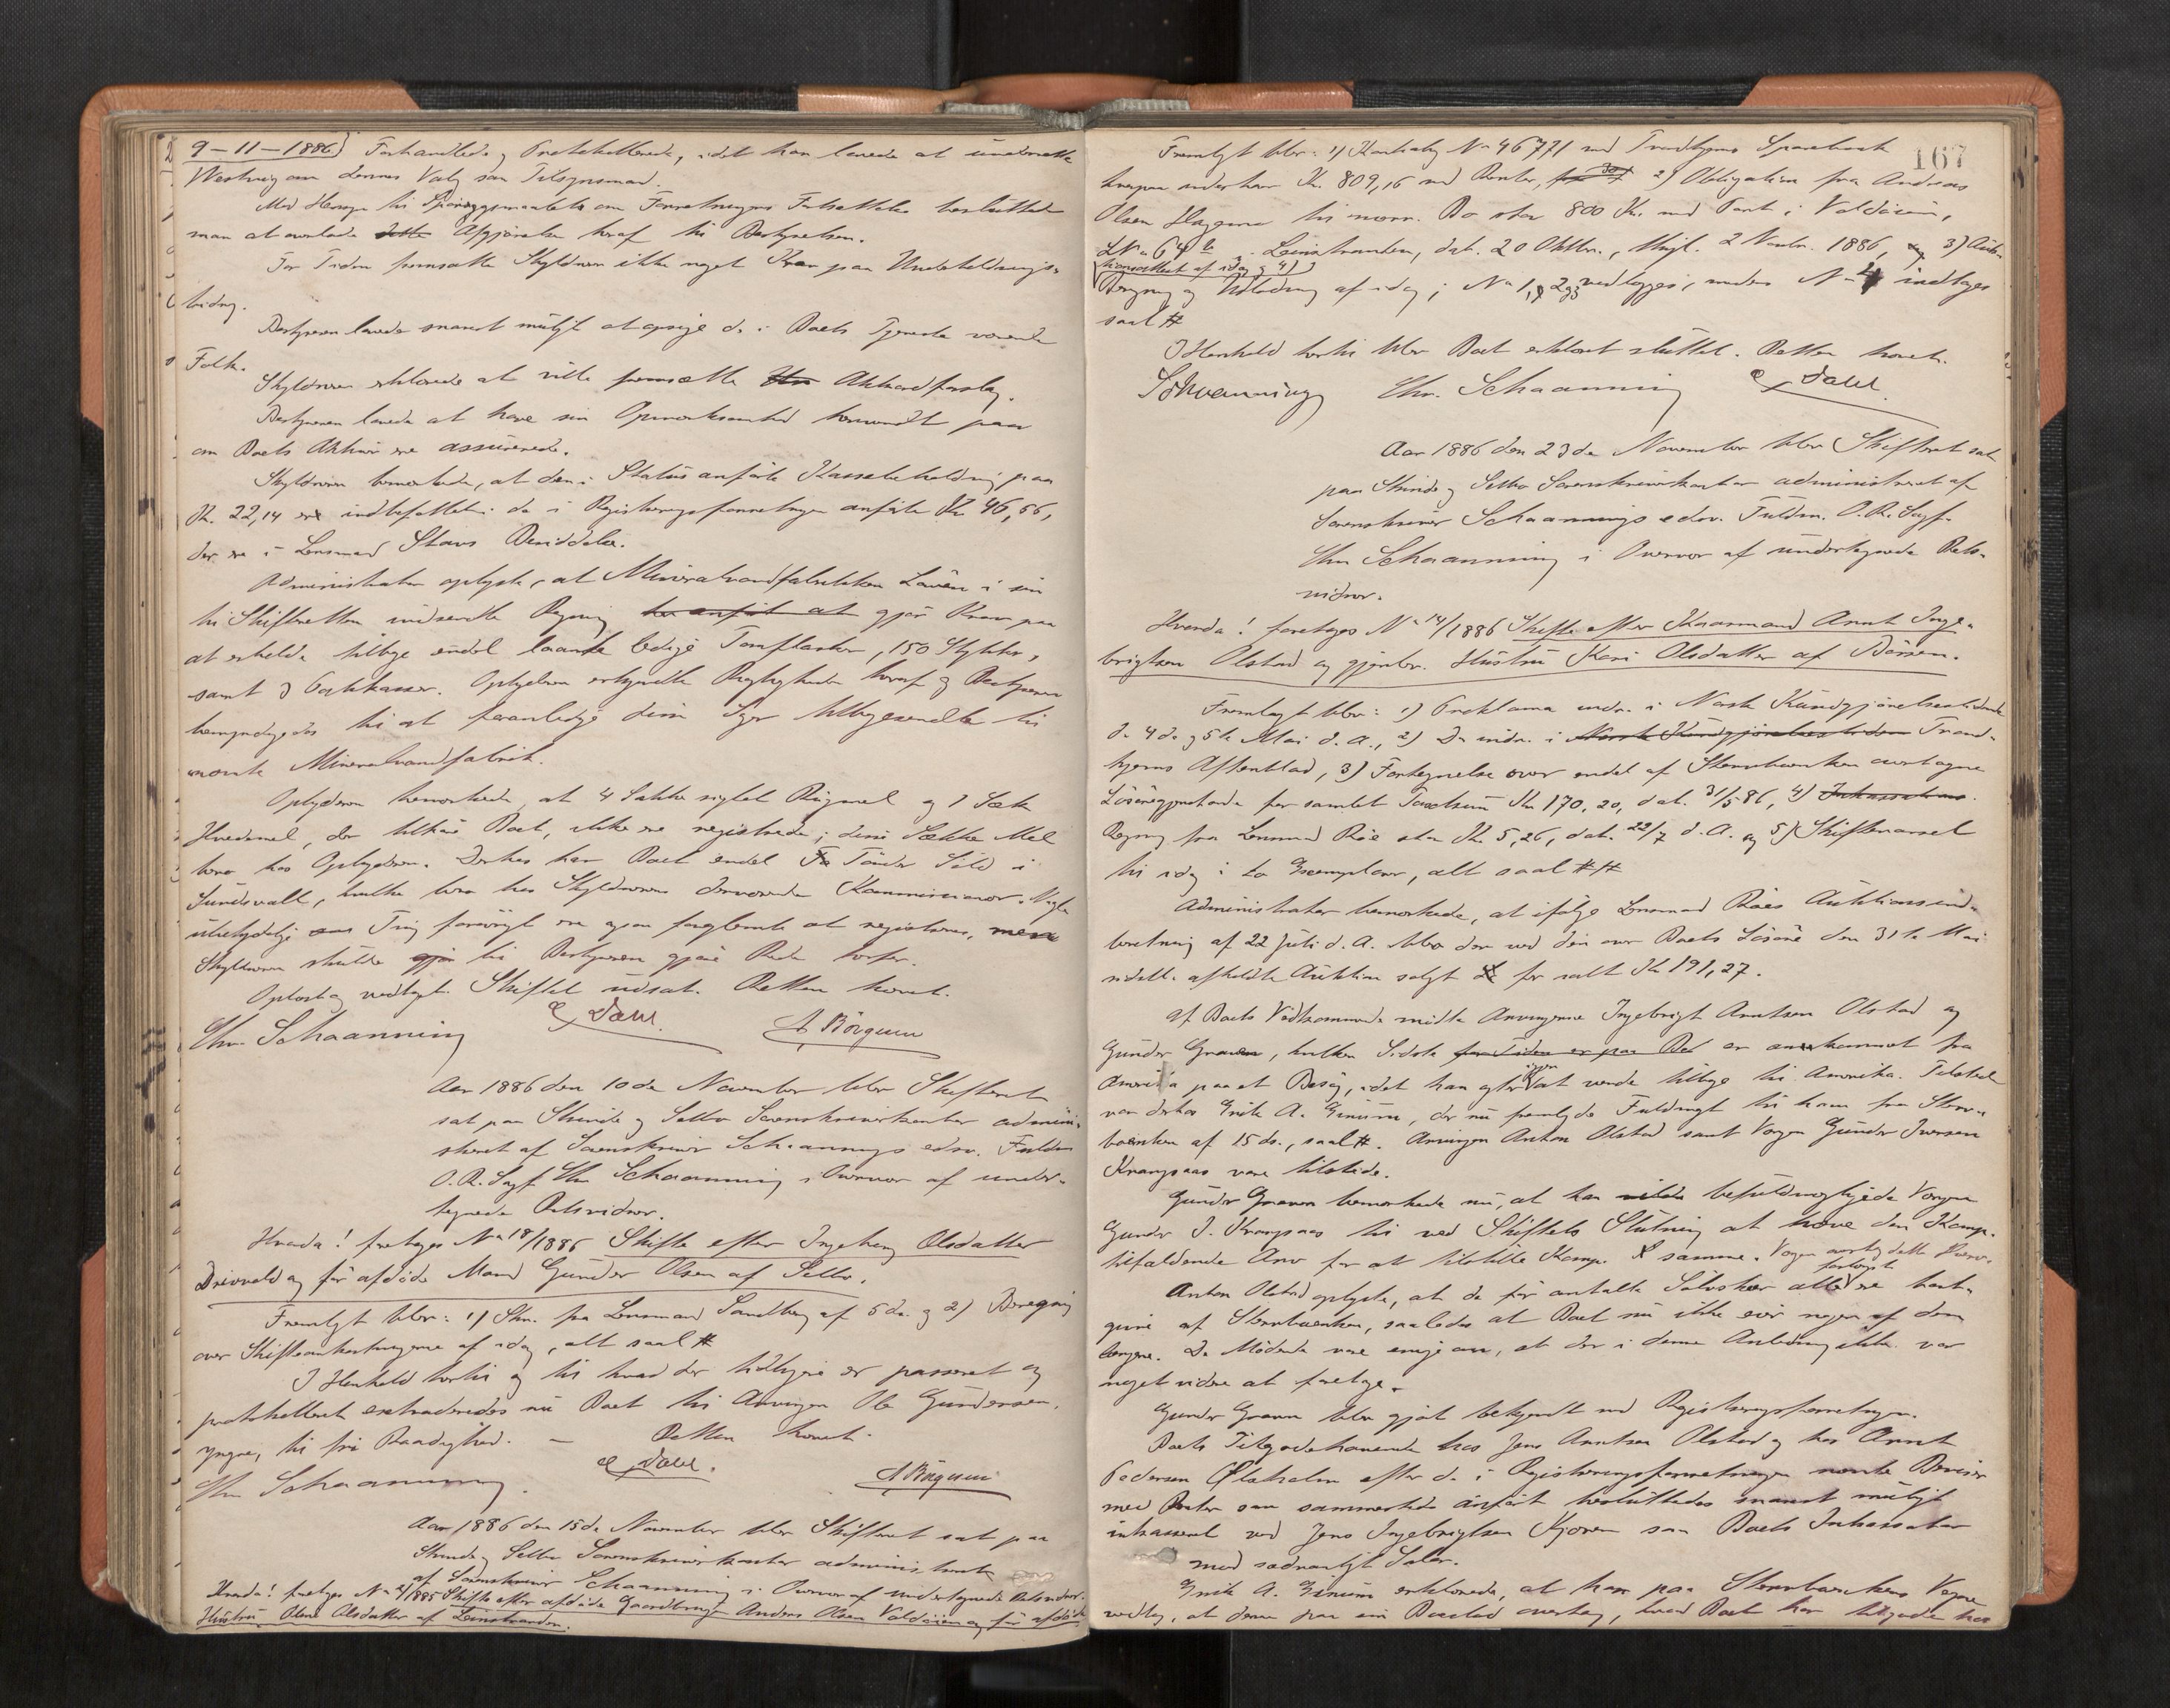 9-11-1886) Forhandlede og Protokollerede, idet han lovede at underrette
Westrey om dennes Valg som Tilsynsmand.
Med Hensyn til Spørgsmaalet om Forretningens Fortsættelse besluttede
man at overlade Afgjørelsen heraf til Bestyrelsen.
For Tiden fremsatte Skyldneren ikke noget Krav paa Underholdnings-
bidrag.
Bestyreren lovede snarest muligt at opsige de i Boets Tjeneste værende
Folk.
Skyldneren erklærede at ville fremsætte Akkordforslag.
Bestyreren lovede at have sin Opmærksomhed henvendt paa
om Boets Aktiver ere assurerede.
Skyldneren bemærkede, at den i Status anførte Kassebeholdning paa
Kr. 22,14 er indbefattet i de i Registreringsforretningen anførte Kr 46,66,
der ere i Lensmand Stavs Besiddelse.
Administrator oplyste, at Mineralvandfabrikken Løven i sin
til Skifteretten indsendte Regning har anført at gjør Krav paa
at erholde tilbage endel laante ledige Tomflasker, 150 Stykker,
samt 3 Pakkasser. Opbyderen erkjendte Rigtigheden heraf og Bestyreren
bemyndigedes til at foranledige disse Sager tilbagesendte til
nævnte Mineralvandfabrik.
Opbyderen bemærkede at 4 Sække sigtet Rugmel og 1 Sæk
Hvedemel, der tilhøre Boet, ikke ere registrerede; disse Sække Mel
bero hos Opbyderen. Derhos har Boet endel Tønder Sild i
Sundsvall, hvilke bero hos Skyldnerens derværende Kommissionær. Nogle
ubetydelige Ting forøvrigt ere ogsaa forglemte at registreres, men
Skyldneren skulde gjør til Bestyreren gjøre Rede herfor.
Oplæst og vedtaget. Skiftet udsat. Retten hævet.
Chr. Schaanning E Dahl. A Børgum
Aar 1886 den 10de November blev Skifteret
sat paa Strinde og Selbu Sorenskriverkontor admini-
streret af Sorenskriver Schaannings edsv. Fuldm.
O.R.Sagf. Chr Schaanning i Overvær af under-
tegnede Retsvidner.
Hvorda! foretoges No 18/1886 Skifte efter Ingeborg Olsdatter
Drivvold og før afdøde Mand Gunder Olsen af Selbu.
Fremlagt blev: 1) Skr. fra Lensmand Sandberg af 5 ds. og 2) Beregning
over Skifteomkostningerne af idag, alt saal #
I Henhold hertil og til hvad der tidligere er passeret og
protokolleret extraderedes nu Boet til Arvingen Ole Gundersen,
yngre, til fri Raadighed. — Retten hævet.
Chr Schaanning. E Dahl. A Børgum
Aar 1886 den 15de November blev Skifteret sat paa
Strinde og Selbu Sorenskriverkontor administreret
af Sorenskriver Schaanning i Overvær af undertegnede Retsvidner.
Hvorda! foretoges No 2/1885 Skifte efter afdøde Gaardbruger Anders Olsen Valdøien og før afdøde
Hustru Olene Olsdatter af Leinstranden.
167
Fremlagt blev: 1) Kontrabog No 46771 med Trondhjems Sparebank
hvorpaa inderhaves Kr. 809,16 med Renter, 2) Obligation fra Andreas
Olsen Haggen til nærv. Bo stor 800 Kr. med Pant i Valdøien,
LNo 64 b. Leinstranden, dat. 20 Oktbr., thingl. 2 Novbr. 1886, og 3) Auk-
tionsattest af idag og 4)
Beregning og Udlodning af idag; No 1, 2 og 3 vedlægges, medens No 4 indtages
saal #
I Henhold hertil blev Boet erklæret sluttet. Retten hævet.
Schaanning Chr. Schaanning E Dahl.
Aar 1886 den 23de November blev Skifteret sat
paa Strinde og Selbu Sorenskriverkontor administreret af
Sorenskriver Schaannings edsv. Fuldm. O.R.Sagf.
Chr Schaanning i Overvær af undertegnede Rets-
vidner.
Hvorda! foretoges No 14/1886 Skifte efter Kaarmand Arnt Inge-
brigtsen Olstad og gjenlev. Hustru Kari Olsdatter af Børsen.
Fremlagt blev: 1) Proklama indr. i Norsk Kundgjørelsestidende
de 4de og 5te Mai d.A., 2) Do indr. i Norsk Kundgjørelsestiden Trond-
hjems Aftenblad, 3) Fortegnelse over endel af Stervboenken overtagne
Løsøregjenstande for samlet Taxtsum Kr 170,20, dat. 31/5 86, 4) Inkassations
Regning fra Lensmand Røe stor Kr 5,26, dat. 22/7 d.A. og 5) Skiftevarsel
til idag i to Exemplarer, alt saal # #
Administrator bemærkede, at ifølge Lensmand Røes Auktionsind-
beretning af 22 Juli d.A. blev der ved den over Boets Løsøre den 31te Mai
sidstl. afholdte Auktion solgt for ialt Kr 191,27.
Af Boets Vedkommende mødte Arvingerne Ingebrigt Arntsen Olstad og
Gunder Graven, hvilken Sidste for Tiden er paa Bes er ankommet fra
Amerika paa et Besøg, idet han agter igjen at vende tilbage til Amerika. Tilstede
var derhos Erik A. Ginum, der nu fremlagde Fuldmagt til ham fra Sterv-
boenken af 15 ds., saal #. Arvingen Anton Olstad samt Værgen Gunder Iversen
Krangsaas vare tilstede.
Gunder Graven bemærkede nu, at han vilde befuldmægtigede Værgen
Gunder I. Krangsaas til ved Skiftets Slutning at hæve den Komp.
tilfaldende Arv for at tilstille Komp. samme. Værgen modtog dette Hverv.
Anton Olstad oplyste, at de før omtalte Sølvskeer alle forlængst ere bort-
givne af Stervboenken, saaledes at Boet nu ikke eier nogen af dem
længere. De Mødende vare enige om, at der i denne Anledning ikke var
noget videre at foretage.
Gunder Graven blev gjort bekjendt med Registreringsforretningen.
Boets Tilgodehavende hos Jens Arntsen Olstad og hos Arnt
Pedersen Ølsholm efter de i Registreringsforretningen nævnte Beviser
med Renter som sammesteds anført besluttedes snarest muligt
inkasseret ved Jens Ingebrigtsen Kjøren som Boets Inkassator
mod sædvanligt Salær.
Erik A. Ginum erklærede, at han paa Stervboenkens Vegne
vedtog, at denne paa sin Boeslod overtog, hvad Boet har tilgode hos